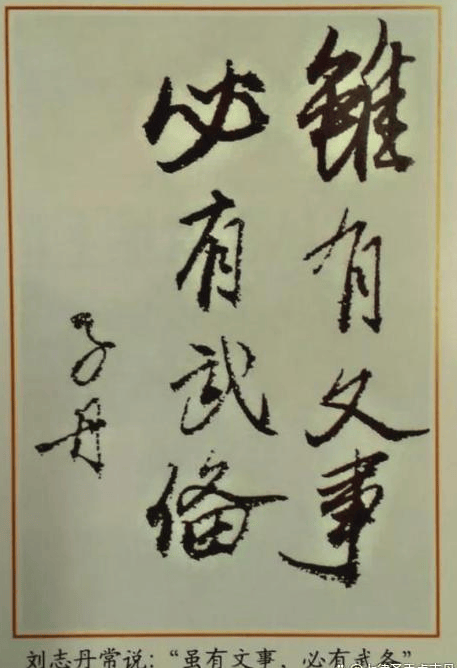 雖有文事
必有武备
子丹
刘志丹常说：“虽有文事，必有武备”